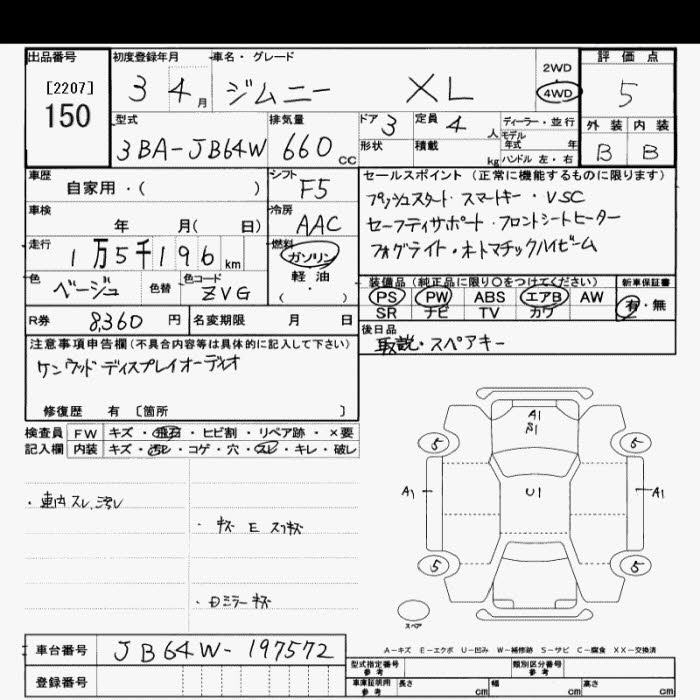 出品番号 初度登録年月 車名・グレード 2WD 評価点
[2207] 150 3 4月 ジムニー XL 4WD 5
型式 排気量 ドア 3 定員 4人 ディーラー・並行 外装 内装
モデル年式 年
3BA-JB64W 660cc 形状 積載 kg ハンドル 左・右 B B
車歴 自家用・( ) シフト F5 セールスポイント (正常に機能するものに限ります)
プッシュスタート・スマートキー・VSC
車検 年 月( 日) 冷房 AAC セーフティサポート・フロントシートヒーター
走行 1万5千196km 燃料 ガソリン フォグライト・オートマチックハイビーム
軽・油
( )
色 ベージュ 色替 色コード ZVG 装備品 (純正品に限り○をつけてください) 新車保証書
PS PW ABS エアB AW 有・無
SR ナビ TV カワ
R券 8,360円 名変期限 月 日 後日品
取説・スペアキー
注意事項申告欄(不具合内容等は具体的に記入して下さい)
ケンウッドディスプレイオーディオ
修復歴 有 〔箇所 〕
検査員 FW キズ・飛石・ヒビ割・リペア跡・×要
記入欄 内装 キズ・汚レ・コゲ・穴・スレ・キレ・破レ
・車内スレ、汚レ
・キズ E スリキズ
・Dミラーキズ
A1
5 5
A1 U1 A1
5 5
スペア
A-キズ E-エクボ U-凹み W-補修跡 S-サビ C-腐食 XX-交換済
車台番号 JB64W-197572
型式指定番号 参考 類別区分番号 参考
登録番号 車庫証明用 参考 長さ cm 幅 cm 高さ cm